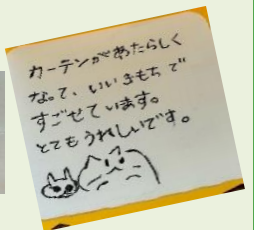 カーテンがあたらしく
なって、いいきもちで
すごせています。
とてもうれしいです。